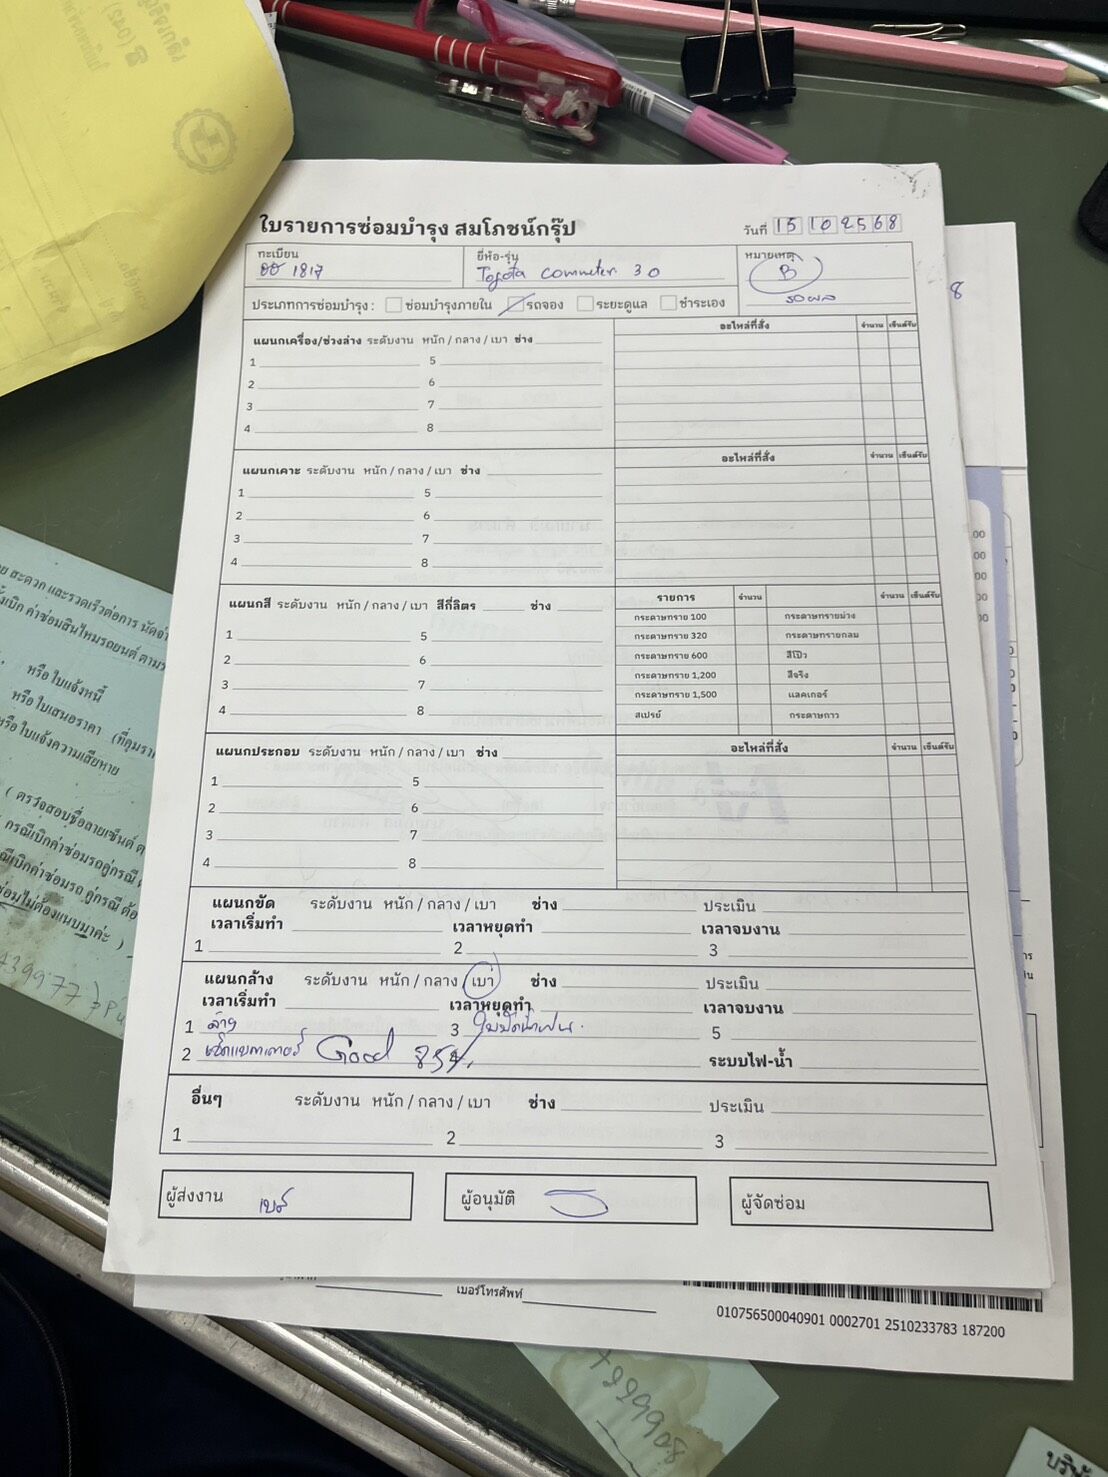 ใบรายการซ่อมบำรุง สมโภชน์กรุ๊ป
วันที่ 15 10 2568
ทะเบียน
ฮฮ 1817
ยี่ห้อ-รุ่น
Toyota commuter 3.0
หมายเหตุ
B
รอผล
ประเภทการซ่อมบำรุง : ซ่อมบำรุงภายใน รถจอง ระยะดูแล ชำระเอง
แผนกเครื่อง/ช่วงล่าง ระดับงาน หนัก / กลาง / เบา ช่าง
อะไหล่ที่สั่ง จำนวน เซ็นต์รับ
1 5
2 6
3 7
4 8
แผนกเคาะ ระดับงาน หนัก / กลาง / เบา ช่าง
อะไหล่ที่สั่ง จำนวน เซ็นต์รับ
1 5
2 6
3 7
4 8
แผนกสี ระดับงาน หนัก / กลาง / เบา สีกี่ลิตร ช่าง
รายการ จำนวน จำนวน เซ็นต์รับ
กระดาษทราย 100 กระดาษทรายม่วง
กระดาษทราย 320 กระดาษทรายกลม
กระดาษทราย 600 สีโป๊ว
กระดาษทราย 1,200 สีจริง
กระดาษทราย 1,500 แลคเกอร์
สเปรย์ กระดาษกาว
1 5
2 6
3 7
4 8
แผนกประกอบ ระดับงาน หนัก / กลาง / เบา ช่าง
อะไหล่ที่สั่ง จำนวน เซ็นต์รับ
1 5
2 6
3 7
4 8
แผนกขัด ระดับงาน หนัก / กลาง / เบา ช่าง ประเมิน
เวลาเริ่มทำ เวลาหยุดทำ เวลาจบงาน
1 2 3
แผนกล้าง ระดับงาน หนัก / กลาง / เบา ช่าง ประเมิน
เวลาเริ่มทำ เวลาหยุดทำ เวลาจบงาน
1 ล้าง 3 ใบปัดน้ำฝน 5
2 เช็คแบตเตอรี่ Good 85% ระบบไฟ-น้ำ
อื่นๆ ระดับงาน หนัก / กลาง / เบา ช่าง ประเมิน
1 2 3
ผู้ส่งงาน
ผู้อนุมัติ
ผู้จัดซ่อม
เบอร์โทรศัพท์
010756500040901 0002701 2510233783 187200
หรือ ใบแจ้งหนี้
หรือ ใบเสนอราคา
หรือ ใบแจ้งความเสียหาย